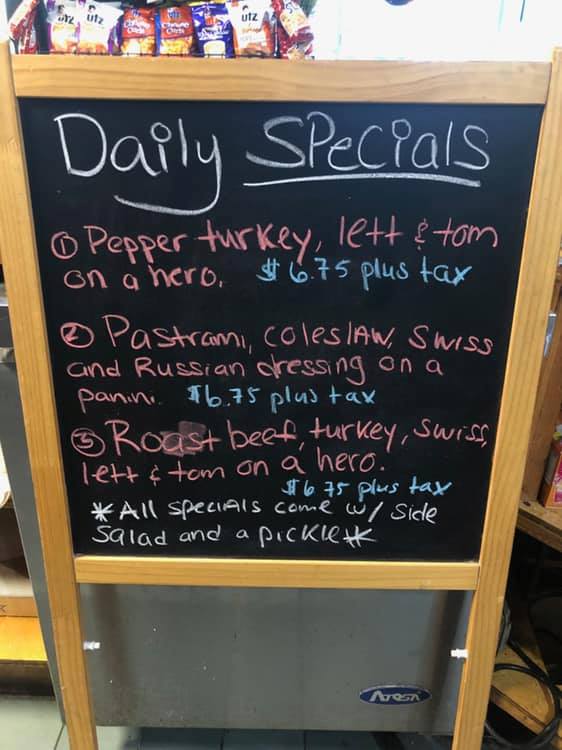 utz utz utz
Cheese
Daily Specials
① Pepper turkey, lett & tom
on a hero. $6.75 plus tax
② Pastrami, coleslaw, swiss
and Russian dressing on a
panini. $6.75 plus tax
③ Roast beef, turkey, swiss,
lett & tom on a hero.
$6.75 plus tax
*All specials come w/ side
salad and a pickle*
Atosa